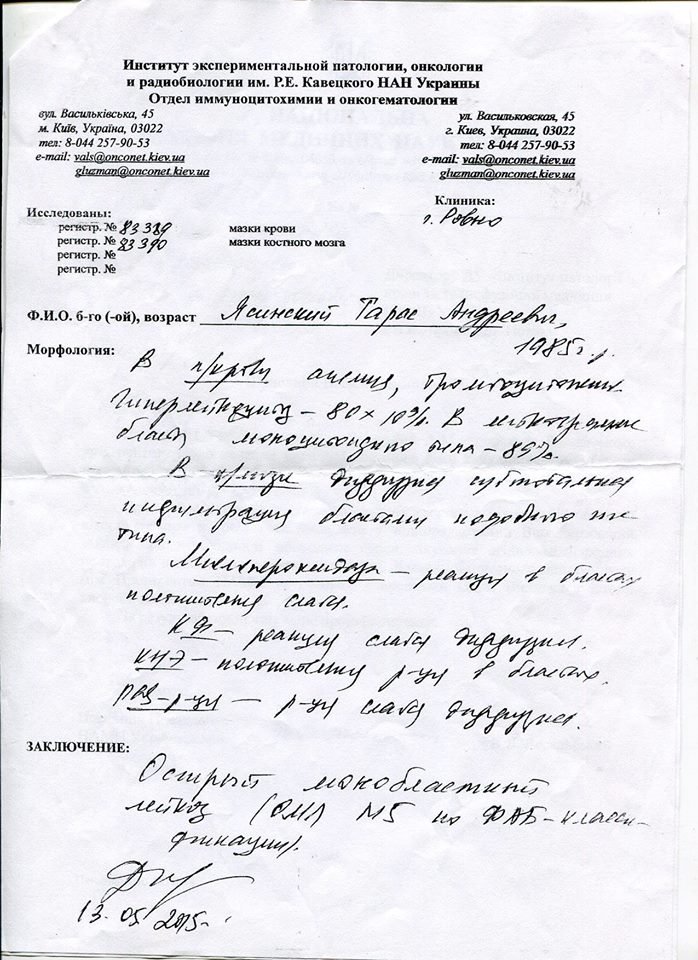 Институт экспериментальной патологии, онкологии
и радиобиологии им. Р.Е. Кавецкого НАН Украины
Отдел иммуноцитохимии и онкогематологии
вул. Васильківська, 45
м. Київ, Україна, 03022
тел: 8-044 257-90-53
e-mail: vals@onconet.kiev.ua
gluzman@onconet.kiev.ua
ул. Васильковская, 45
г. Киев, Украина, 03022
тел: 8-044 257-90-53
e-mail: vals@onconet.kiev.ua
gluzman@onconet.kiev.ua
Клиника:
г. Ровно
Исследованы:
регистр. № 83389 мазки крови
регистр. № 83390 мазки костного мозга
регистр. №
регистр. №
Ф.И.О. б-го (-ой), возраст Ясинский Тарас Андреевич,
1985г.р.
Морфология:
В п/крови анемия, тромбоцитопения.
Гиперлейкоцитоз – 80 х 10⁹/л. В лейкограмме
бласты моноцитоидного типа – 89%.
В к/мозге диффузная субтотальная
инфильтрация бластами подобного же
типа.
Миелопероксидаза – реакция в бластах
положительная слабая.
КФ – реакция слабая диффузная.
КНЭ – положительная р-ция в бластах.
PAS-р-ция – р-ция слабая диффузная.
ЗАКЛЮЧЕНИЕ:
Острый монобластный
лейкоз (ОМЛ) М5 по ФАБ-класси-
фикации.
13.05.2015г.